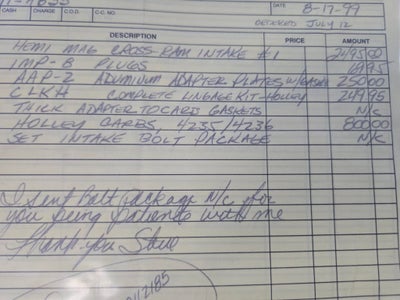 DATE 8-17-99
CASH CHARGE C.O.D. C.C. NO.
ORDERED JULY 12
DESCRIPTION PRICE AMOUNT
HEMI MAG CROSS-RAM INTAKE #1 2495 00
IMP-8 PLUGS 19 95
AAP-2 ALUMINUM ADAPTER PLATES W/ 250 00
CLKH COMPLETE LINGAGE KIT-HOLLEY 249 95
THICK ADAPTER TO CARB GASKETS N/C
HOLLEY CARBS, 4235/4236 800 00
SET INTAKE BOLT PACKAGE N/C
I sent Bolt Package N/C for
you being patiente with me
Thank you Steve